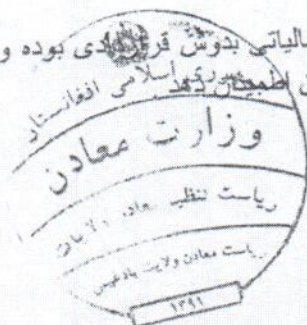 مالیاتی بدوش قراردادی بوده و
اطمینان دهد
جمهوری اسلامی افغانستان
وزارت معادن
ریاست تنظیم معادن ولایات
ریاست معادن ولایت بادغیس
۱۳۹۱